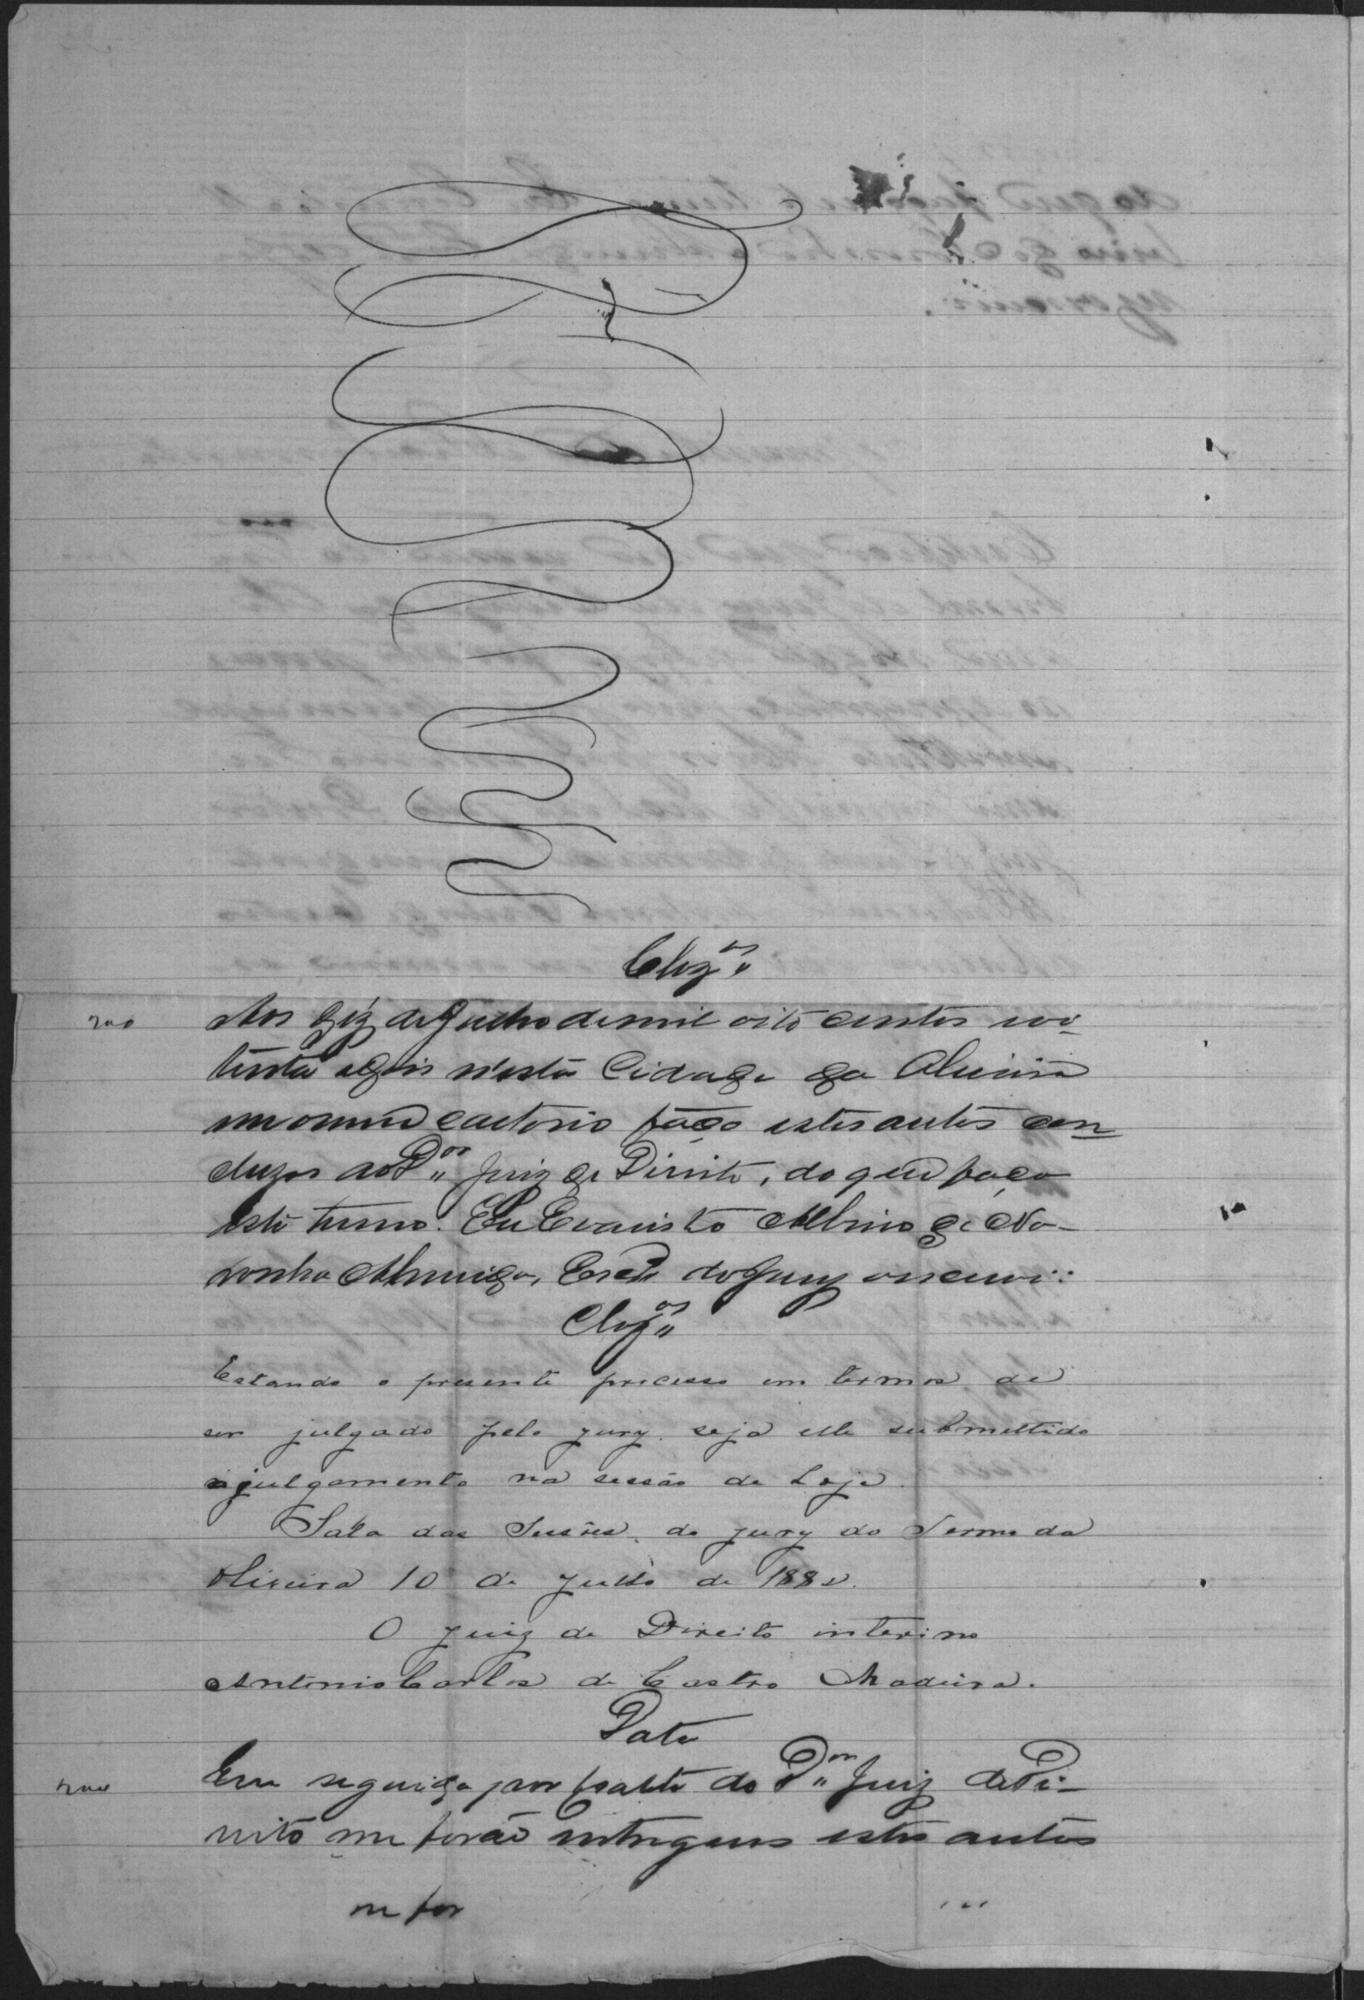 Clzos
200 Aos dez de Julho de mil oito centos eoi
tenta e dois n'esta Cidade da Oliveira
em o meu cartorio faço estes autos con
cluzos ao Dor Juiz de Direito, do que faço
este termo. Eu Evaristo Albino de No-
ronha Almeida, Escram do Jury o escrevi:
Clzos
Estando o presente processo em termos de
ser julgado pelo jury seja elle submettido
a julgamento na sessão de hoje.
Sala das Sessões do jury do Termo da
Oliveira 10 de Julho de 1882.
O Juiz de Direito interino
Antonio Carlos de Castro Madeira.
Data
200 Em seguida por parte do Dor Juiz de Di-
reito me forão entregues estes autos
me for